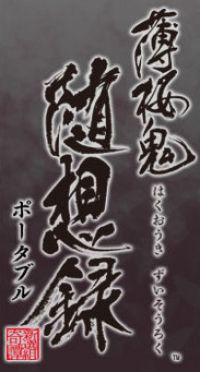 薄桜鬼
随想録
はくおうき ずいそうろく
ポータブル
TM